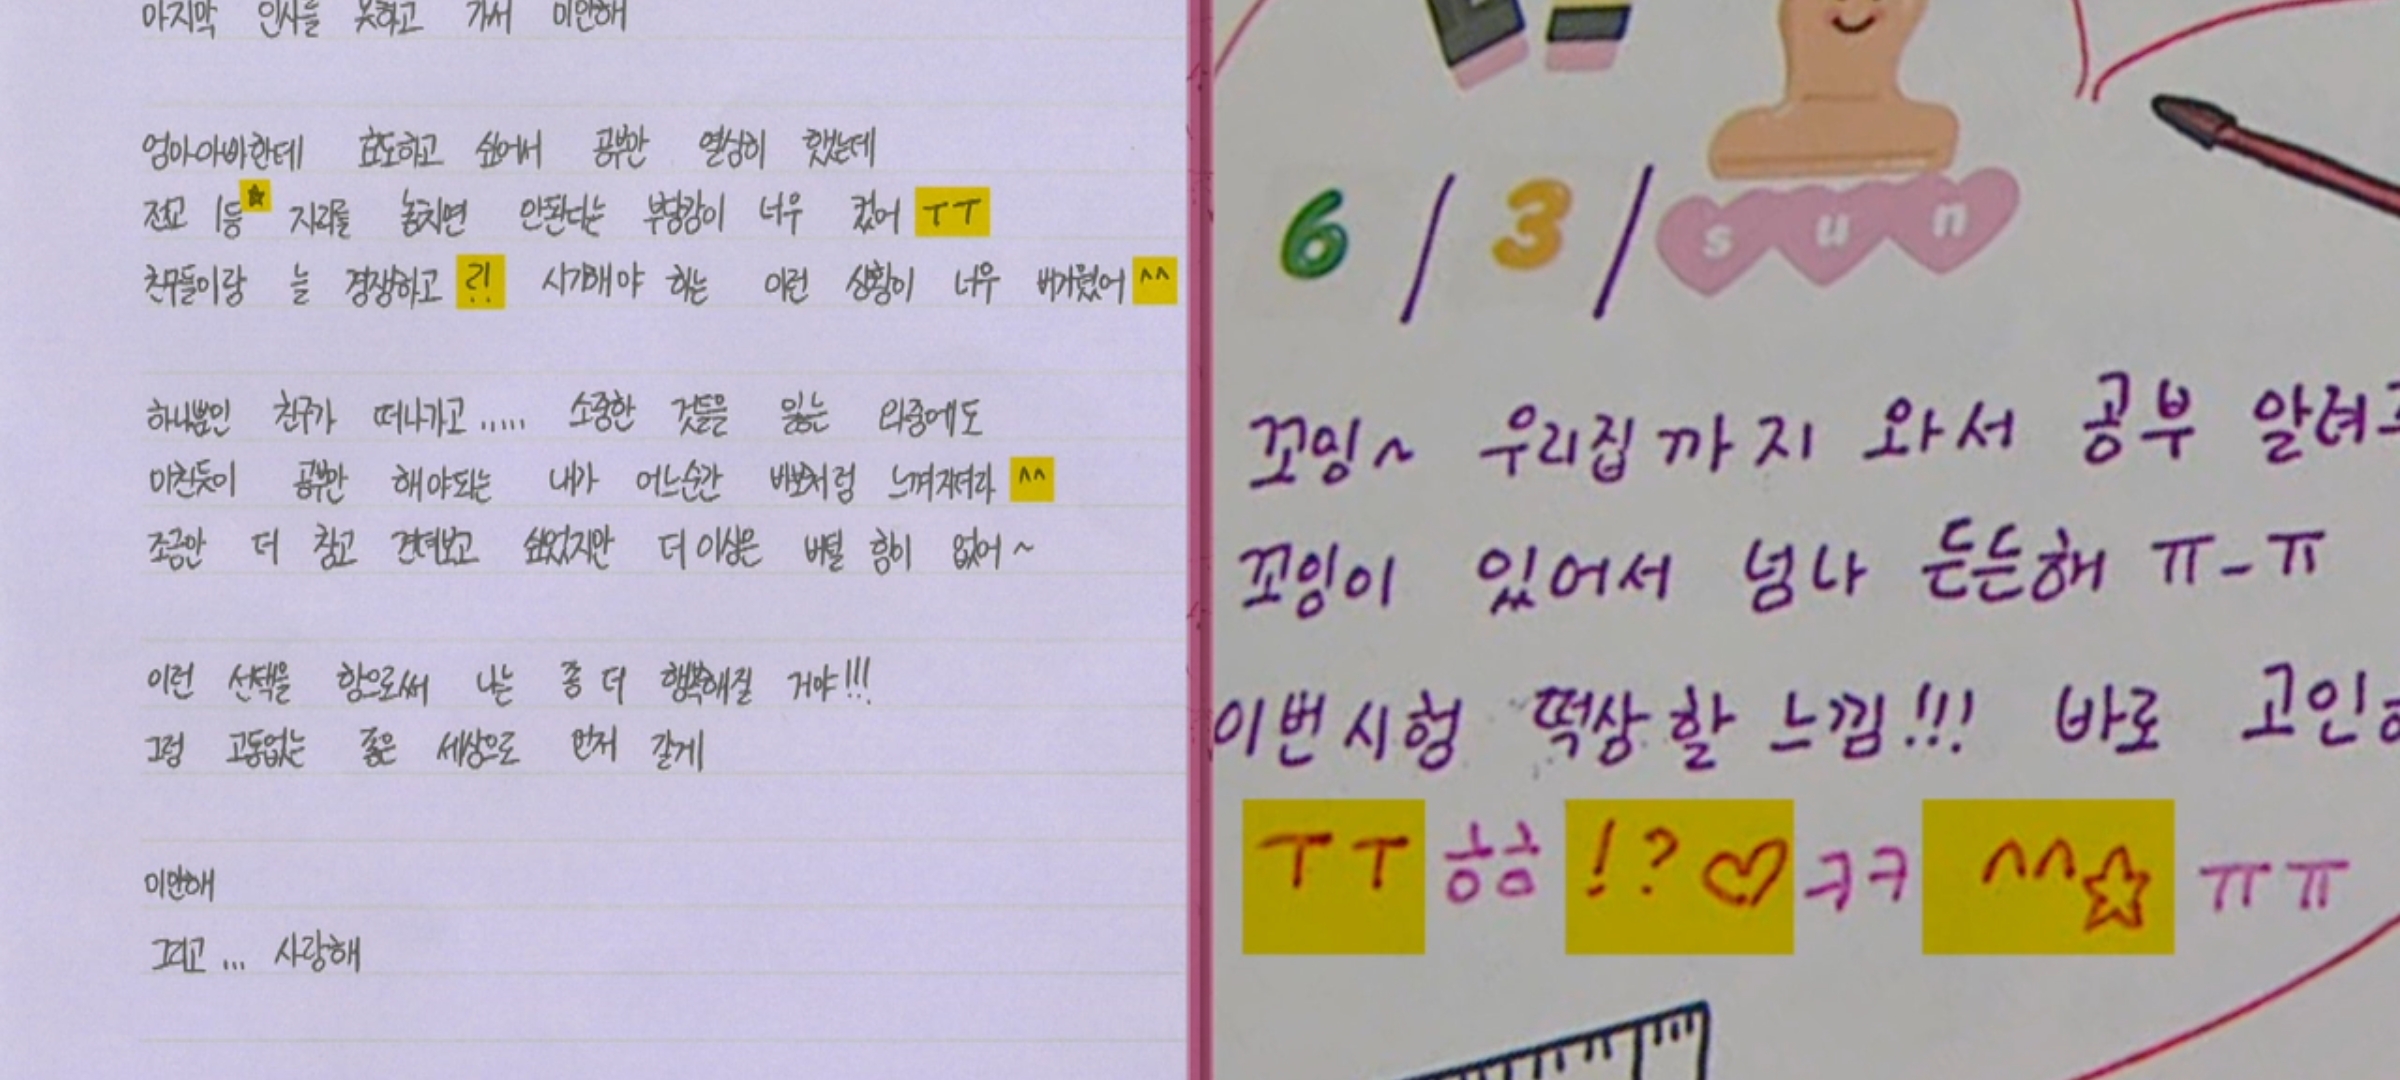 마지막 인사를 못하고 가서 미안해
엄마아빠한테 효도하고 싶어서 공부만 열심히 했는데
전교 1등☆ 자리를 놓치면 안된다는 부담감이 너무 컸어 ㅜㅜ
친구들이랑 늘 경쟁하고 ?! 시기해야 하는 이런 상황이 너무 버거웠어 ^^
하나뿐인 친구가 떠나가고..... 소중한 것들을 잃는 와중에도
미친듯이 공부만 해야되는 내가 어느순간 바보처럼 느껴지더라 ^^
조금만 더 참고 견뎌보고 싶었지만 더 이상은 버틸 힘이 없어~
이런 선택을 함으로써 나는 좀 더 행복해질 거야!!!
그럼 고통없는 좋은 세상으로 먼저 갈게
미안해
그리고... 사랑해
6/3/sun
꼬잉~ 우리집까지 와서 공부 알려주
꼬잉이 있어서 넘나 든든해 ㅠ-ㅠ
이번시험 떡상할 느낌!!! 바로 고인
ㅜㅜ 흥흥 !?♡ ㅋㅋ ^^☆ ㅠㅠ